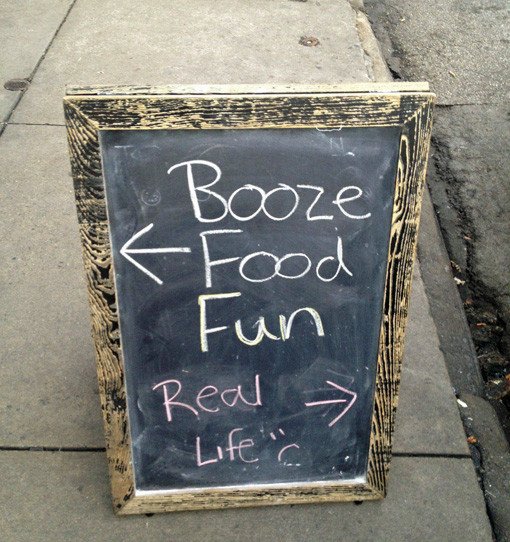 Booze
← Food
Fun
Real →
Life "c